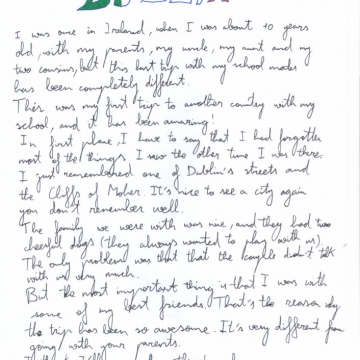 DUBLIN
I was once in Ireland, when I was about 10 years
old, with my parents, my uncle, my aunt and my
two cousins, but this last trip with my school mates
has been completely different.
This was my first trip to another country with my
school, and it has been amazing!
In first place, I have to say that I had forgotten
most of the things I saw the other time I was there.
I just remembered one of Dublin's streets and
the Cliffs of Moher. It's nice to see a city again
you don't remember well.
The family we were with was nice, and they had two
cheerful dogs (they always wanted to play with us).
The only problem was that that the couple didn't talk
with us very much.
But the most important thing is that I was with
some of my best friends. That's the reason why
the trip has been so awesome. It's very different from
going with your parents.